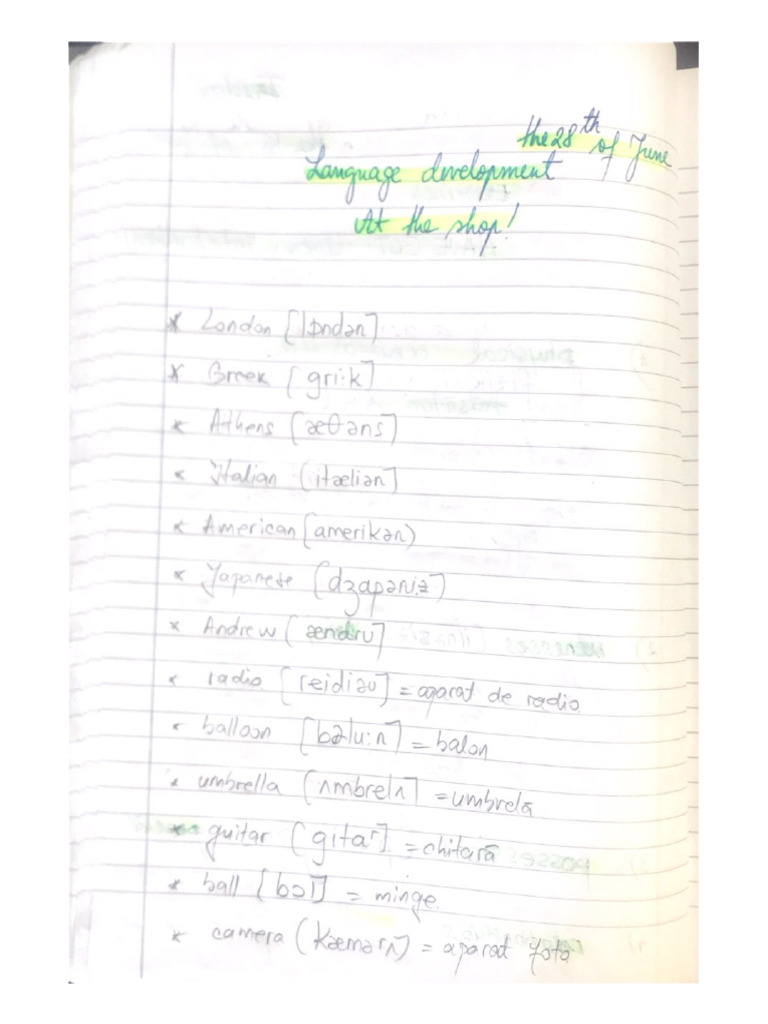 the 28th of June
Language development
At the shop!
* London [lɒndən]
* Greek [gri:k]
* Athens [æθəns]
* Italian [itæliən]
* American [amerikən)
* Japanese [dʒapəni:z]
* Andrew [ændru]
* radio [reidiəu] = aparat de radio
* balloon [bəlu:n] = balon
* umbrella [ʌmbrelʌ] = umbrelă
* guitar [gitaʳ] = chitară
* ball [bɔl] = minge.
* camera (kæmərʌ) = aparat foto